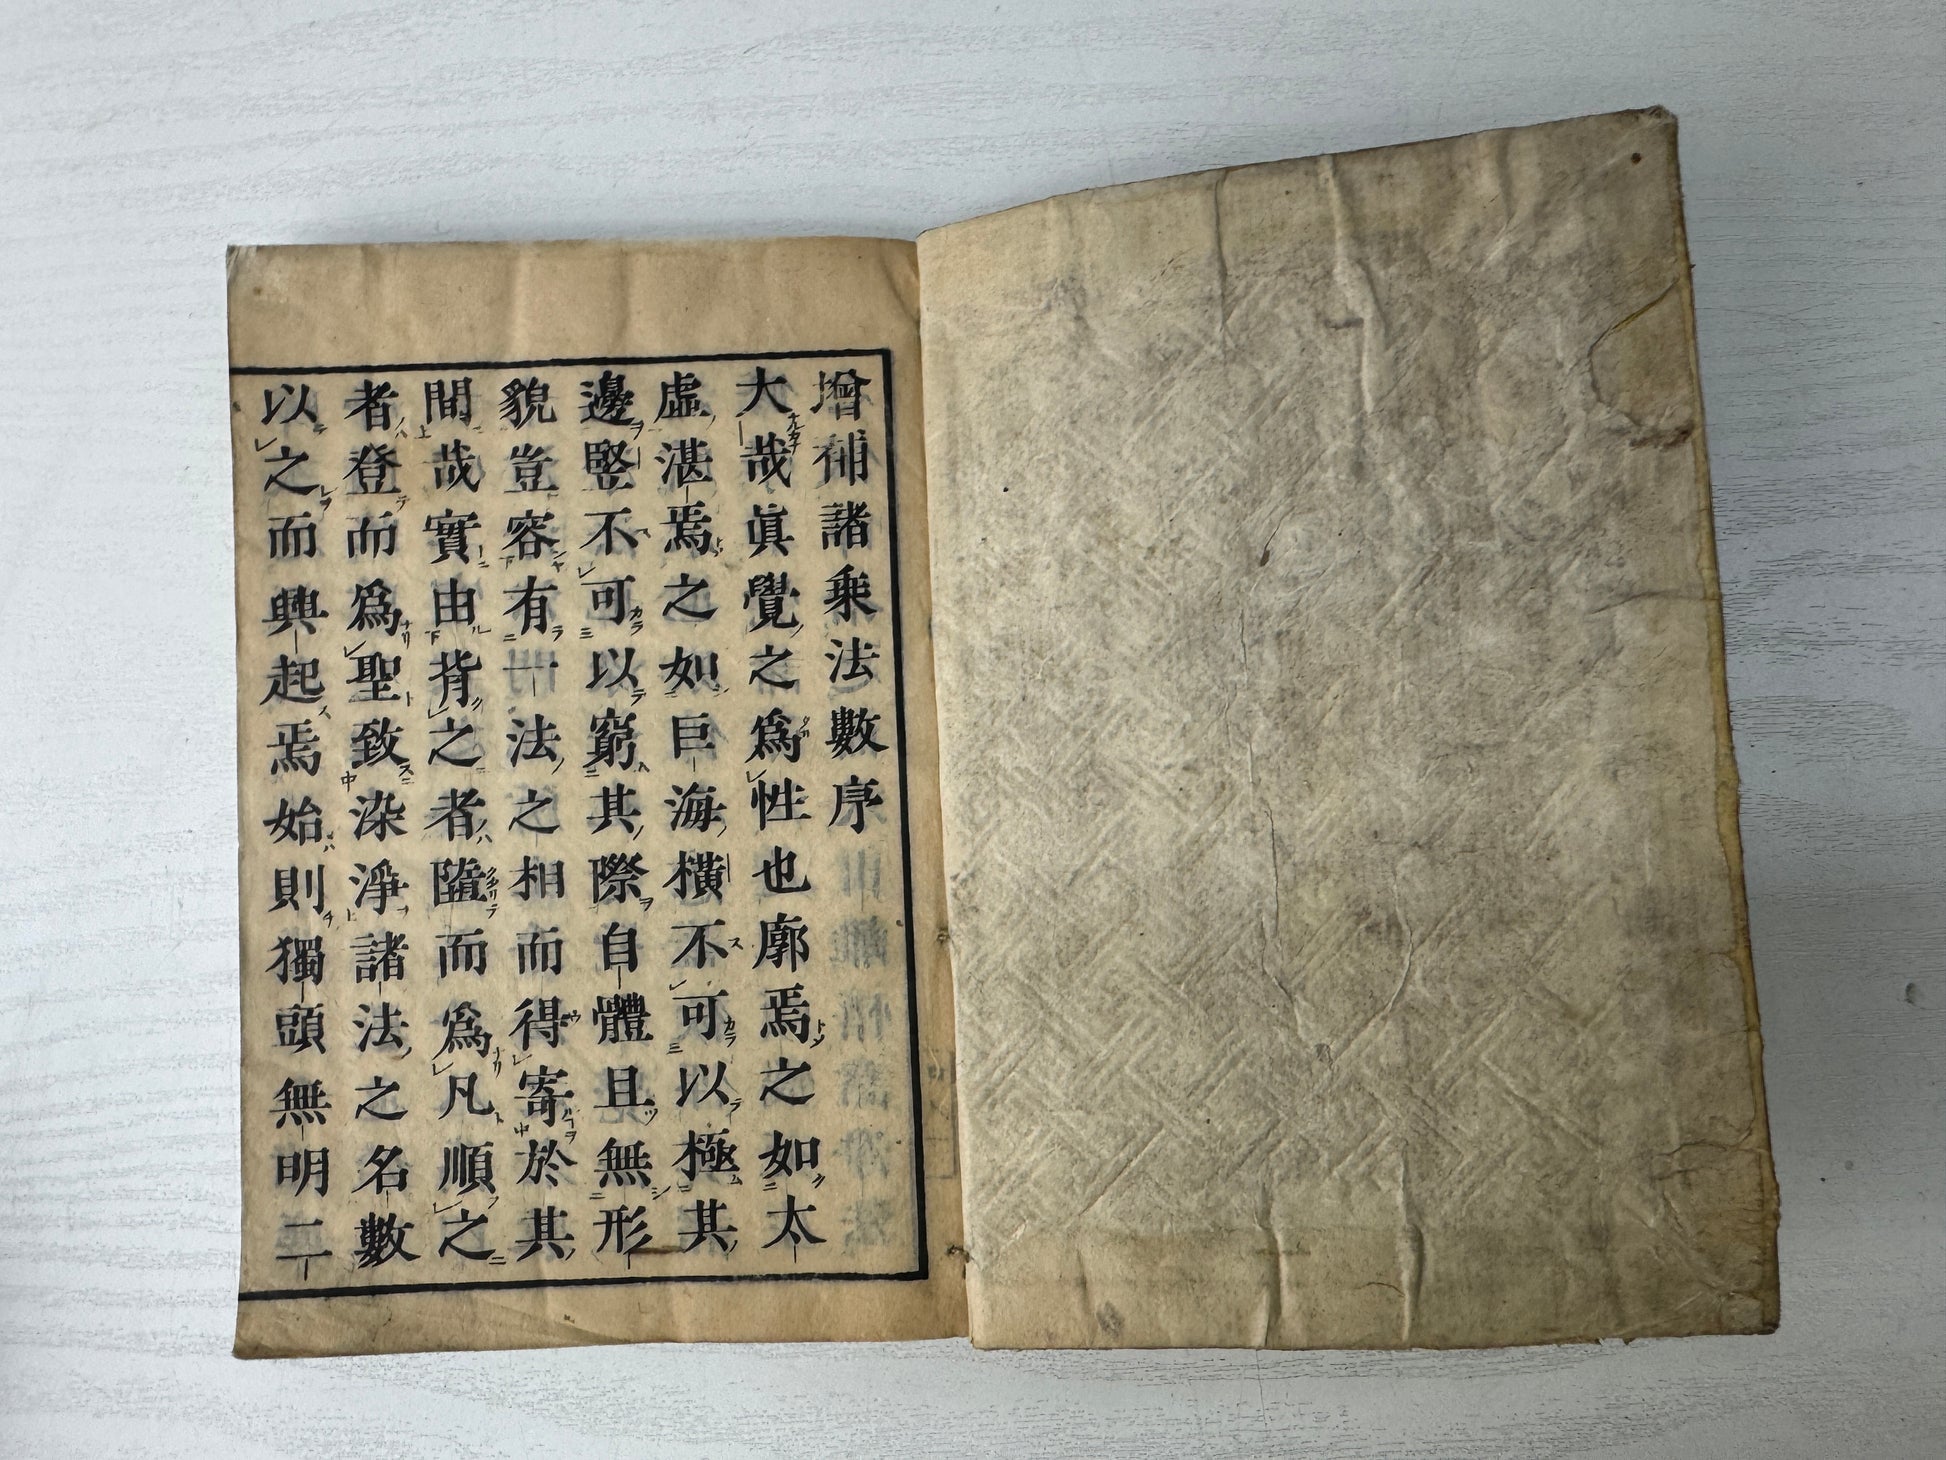 增補諸乗法數序
大哉眞覺之爲性也廓焉之如太
虛湛焉之如巨海橫不可以極其
邊竪不可以窮其際自體且無形
貌豈容有一法之相而得寄於其
間哉實由背之者墮而爲凡順之
者登而爲聖致染淨諸法之名數
以之而興起焉始則獨頭無明二